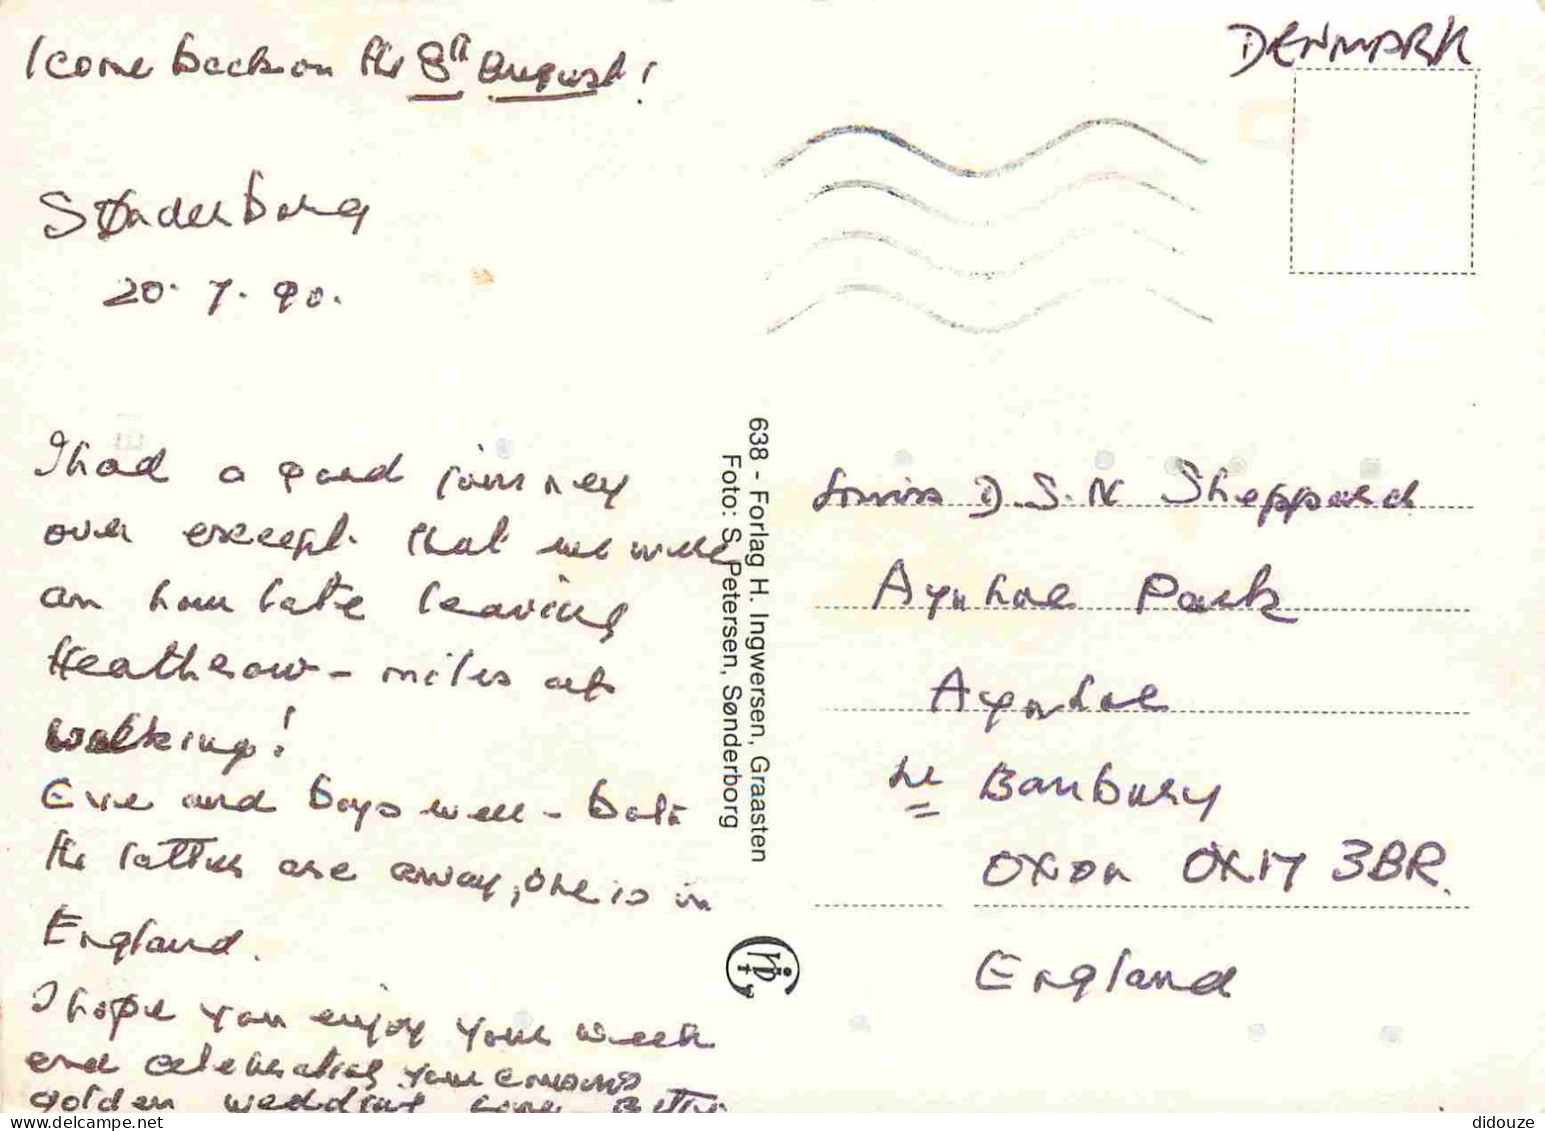 I come back on the 8th August!
Sønderborg
20. 7. 90.
I had a good journey
over except that we were
an hour late leaving
Heathrow - miles of
walking!
Eve and boys well - both
the latter are away, one is in
England.
I hope you enjoy your week
and celebrating your cousin's
golden wedding
DENMARK
638 - Forlag H. Ingwersen, Graasten
Foto: S. Petersen, Sønderborg
D. S. N Sheppard
Aynhoe Park
Aynhoe
Nr Banbury
OXON OX17 3BR.
England
didouze